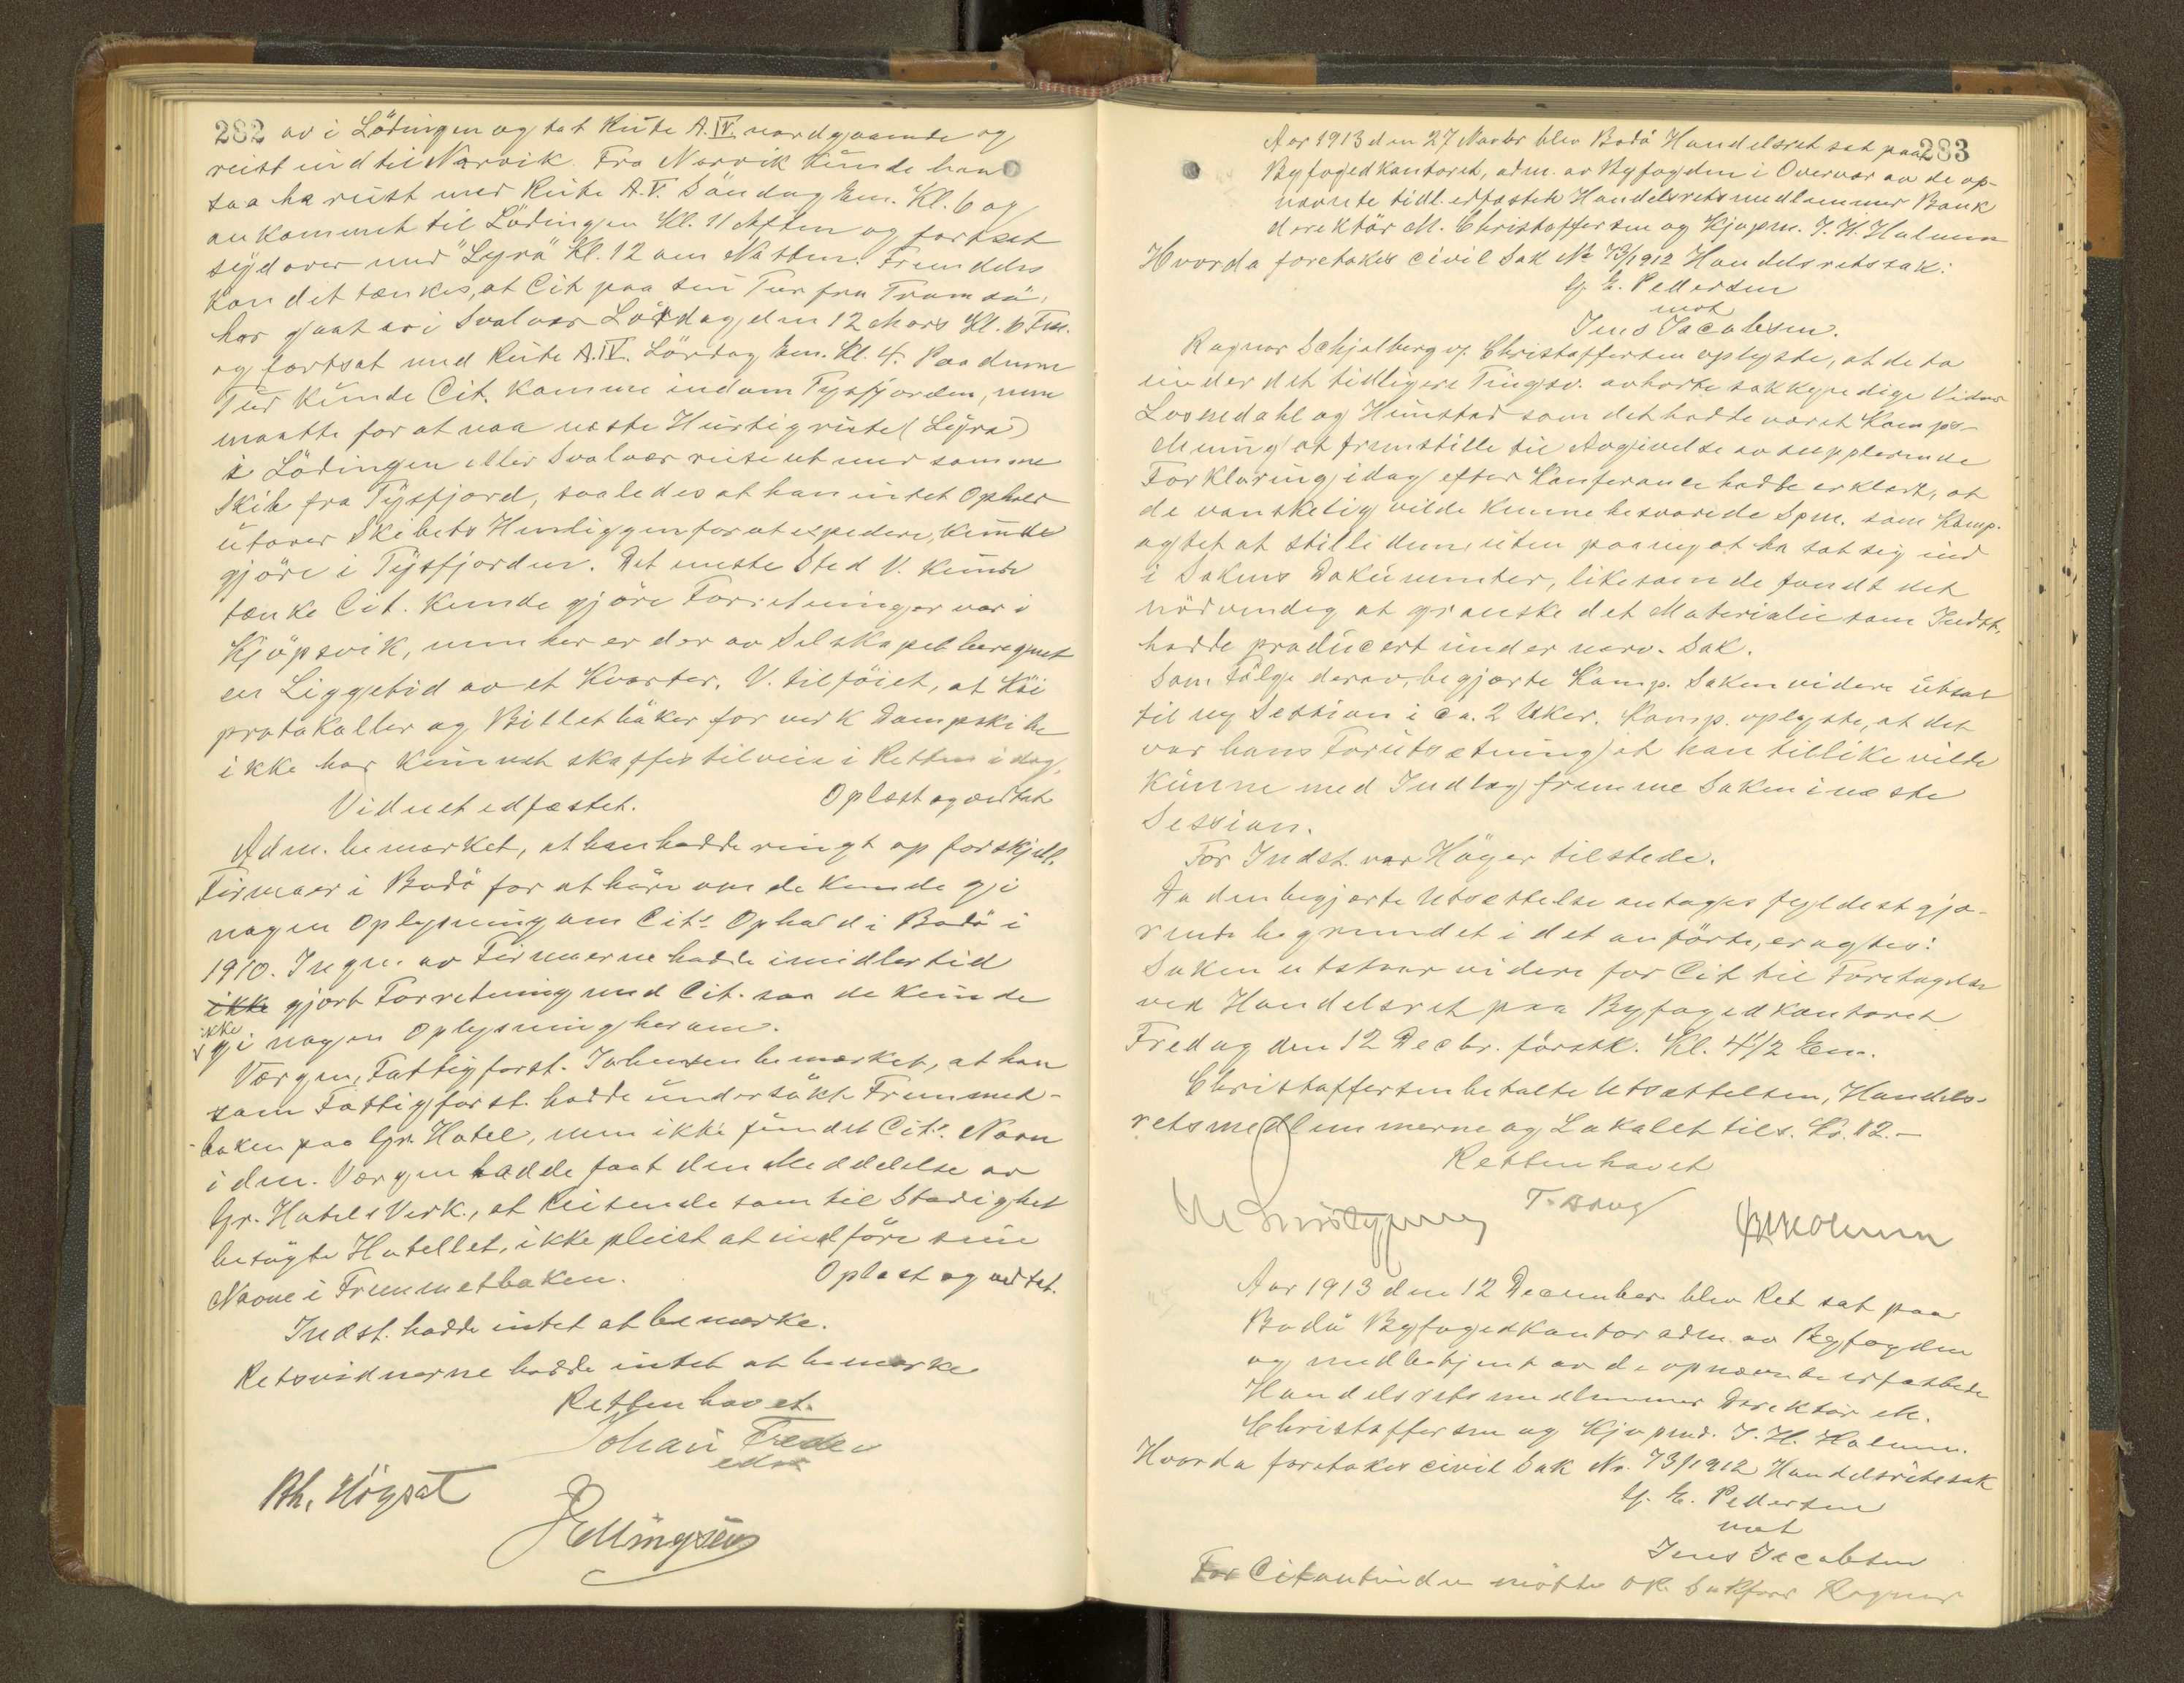 282 av i Lödingen og tat Rute A.IV. nordgaaende og
reist ind til Narvik. Fra Narvik kunde han
saa ha reist med Rute A.V. Söndag Em. Kl. 6 og
ankommet til Lödingen Kl. 11 Aften og fortsat
sydover med "Lyra" Kl. 12 om Natten. Fremdeles
kan det tænkes, at Cit. paa sin Tur fra Tromsö,
har gaat av i Svolvær Lördag den 12 Mars Kl. 6 Fm.
og fortsat med Rute A.IV. Lördag Em. Kl. 4. Paa denne
Tur kunde Cit. komme indom Tysfjorden, men
maatte for at naa næste Hurtigrute (Lyra)
i Lödingen eller Svolvær reise ut med samme
Skib fra Tysfjord, saaledes at han intet Ophold
utover Skibets Henliggen for at expedere, kunde
gjöre i Tysfjorden. Det eneste Sted V. kunde
tænke Cit. kunde gjöre Forretninger var i
Kjöpsvik, men her er der av Selskapet beregnet
en Liggetid av et Kvarter. V. tilföiet, at Köi
protokoller og Billetböker for ved k Dampskibe
ikke har kunnet skaffes tilveie i Retten idag.
Vidnet edfæstet. Oplæst og vedtat
Adm. bemærket, at han hadde ringt op forskjell.
Firmaer i Bodö for at höre om de kunde gi
nogen Oplysning om Cits Ophold i Bodö i
1910. Ingen av Firmaerne hadde imidlertid
ikke gjort Forretning med Cit. saa de kunde
ikke
√ gi nogen Oplysning herom.
Værgen, Fattigforst. Johensen bemærket, at han
som Fattigforst. hadde undersökt Fremmed-
boken paa Gr. Hotel, men ikke fundet Cit's Navn
i den. Værgen hadde faat den Meddelelse av
Gr. Hotels Verk., at Reisende som til Stadighet
besögte Hotellet, ikke pleiet at indföre sine
Navne i Fremmetboken. Oplæst og vedtat.
Indst. hadde intet at bemærke.
Retsvidnerne hadde intet at bemærke
Retten hævet.
Johan Freder
Edv
Ellingsen
283
Aar 1913 den 27 Novbr blev Bodö Handelsret sat paa
Byfogedkontoret, adm. av Byfogden i Overvær av de op-
nævnte tidl. edfæstede Handelsretsmedlemmer Bank
direktör M. Christoffersen og Kjøpm. J. H. Holmen
Hvorda foretokes civil Sak No 73/1912 Handelsretssak:
G. E. Pedersen
mot
Jens Jacobsen.
Ragnar Schjølberg v. Christoffersen oplyste, at de to
under det tidligere Tingsv. avhørte sakkyndige Vidner
Lovendahl og Hunstad som det hadde været Komps-
Mening at fremstille til Avgivelse av supplerende
Forklaring idag efter Konferance hadde erklært, at
de vanskelig vilde kunne besvare de Spm. som Komp.
agtet at stille dem uten paany at ha sat sig ind
i Sakens Dokumenter, likesom de fandt det
nödvendig at granske det Materiale som Indst.
hadde producert under nærv. Sak.
Som Fölge derav, begjærte Komp. Saken videre utsat
til ny Session i ca. 2 Uker. Komp. oplyste, at det
var hans Forutsætning, at han tillike vilde
kunne med Indlæg fremme Saken i næste
Session.
For Indst. var Höyer tilstede.
Da den begjærte Utsættelse antages fyldestgjø-
rende begrundet i det anførte, eragtes:
Saken utstaar videre for Cit til Foretagelse
ved Handelsret paa Byfogedkontoret
Fredag den 12 Decbr. förstk. Kl. 4 1/2 Em.
Christoffersen betalte Utsættelsen, Handels-
retsmedlemmerne og Lokalet tils. Kr. 12.-
Retten hævet
JHHolmen
Aar 1913 den 12 December blev Ret sat paa
Bodö Byfogedkontor adm. av Byfogden
og medbetjent av de opnævnte edfæstede
Handelsretsmedlemmer Direktör M.
Christoffersen og Kjøpmd. J. H. Holmen.
Hvorda foretokes civil Sak No. 73/1912 Handelsretssak
G. E. Pedersen
mot
Jens Jacobsen
For Citantinden mötte OR. Sakförer Ragnar